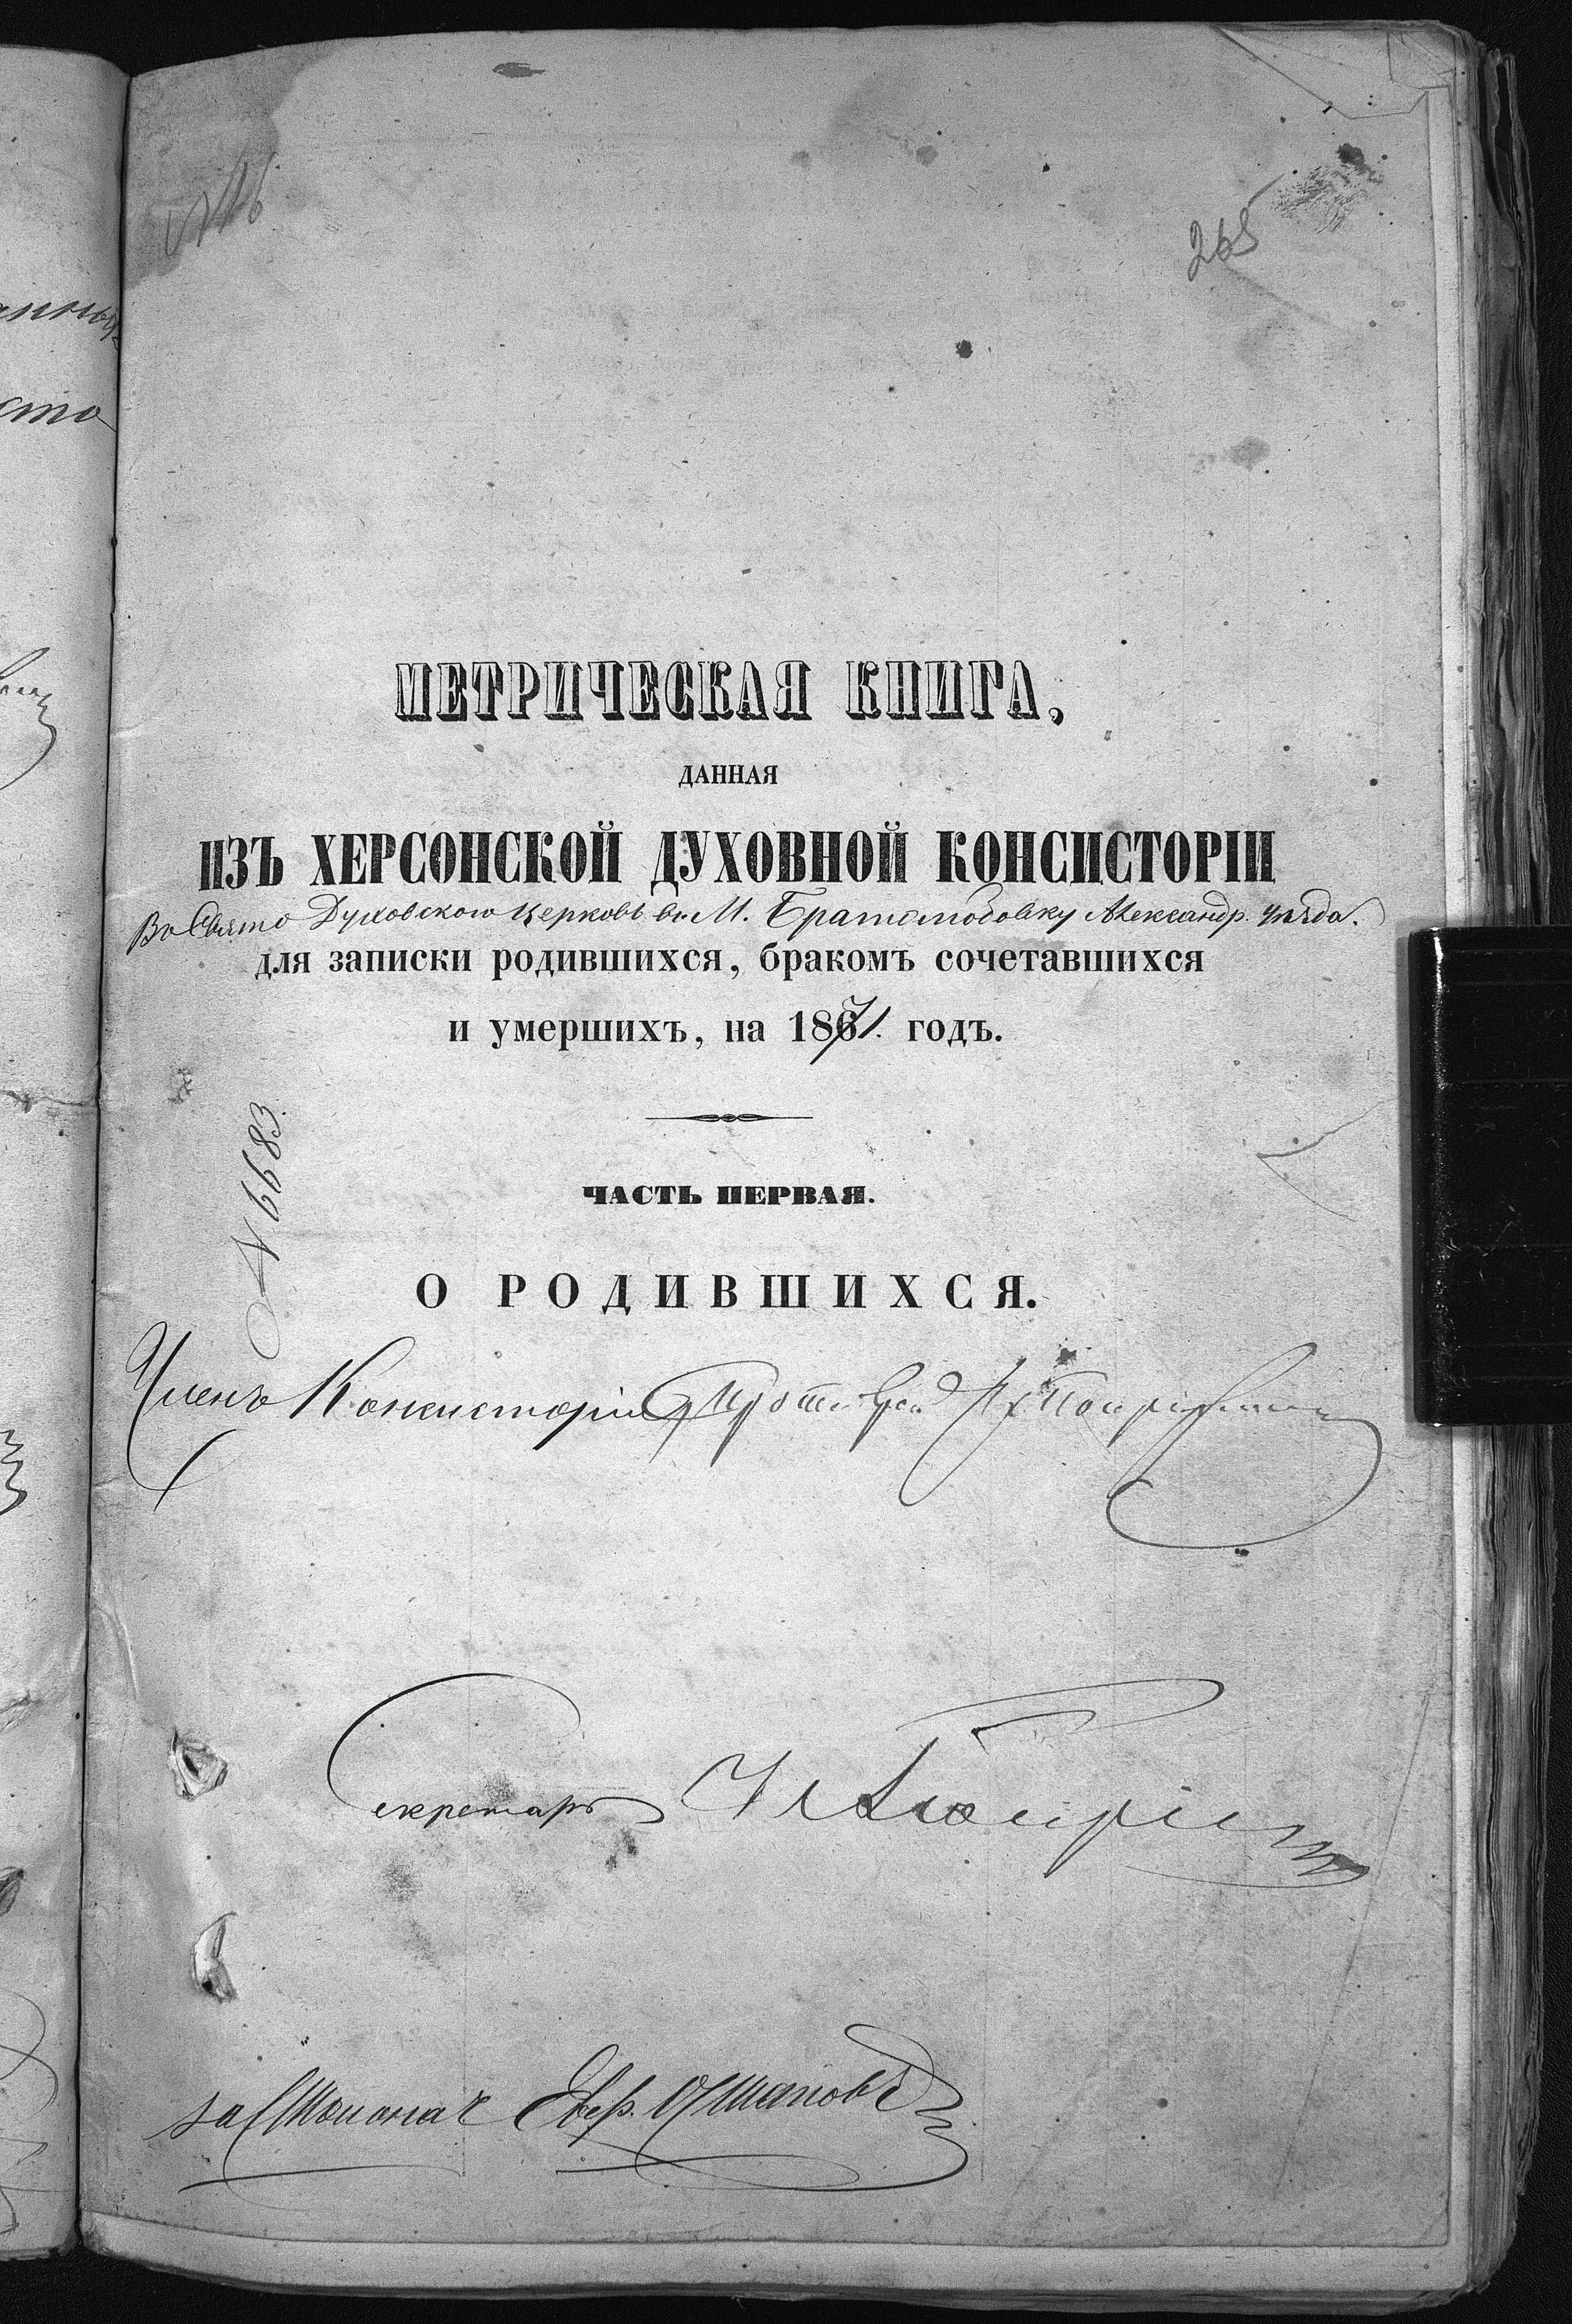 265
МЕТРИЧЕСКАЯ КНИГА,
ДАННАЯ
ИЗЪ ХЕРСОНСКОЙ ДУХОВНОЙ КОНСИСТОРІИ
Во Свято Духовскою Церковь въ М. Братолюбовку Александр. уѣзда.
для записки родившихся, бракомъ сочетавшихся
и умершихъ, на 1871. годъ.
N 6683.
ЧАСТЬ ПЕРВАЯ.
О РОДИВШИХСЯ.
Членъ Консисторіи Протоіерей
Секретарь
за Столонач